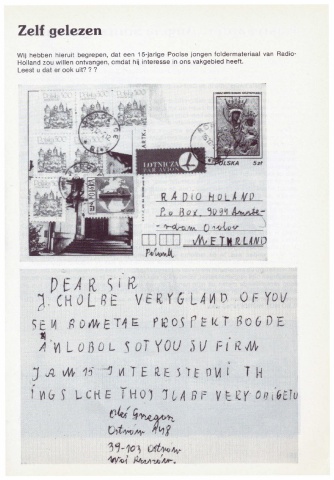 Zelf gelezen
Wij hebben hieruit begrepen, dat een 15-jarige Poolse jongen foldermateriaal van Radio-
Holland zou willen ontvangen, omdat hij interesse in ons vakgebied heeft.
Leest u dat er ook uit? ? ?
POLSKA 5zł
LOTNICZA
PAR AVION
RADIO HOLAND
P.O BOX. 9099 Amste-
rdam
METHRLAND
DEAR SIR
J. CHOLBE VERYGLAND OF YOU
SEN BOMETAE PROSPEKT BOGDE
AINLOBOL SOT YOU SU FIRM
JAM 15 INTERESTEDNI TH
INGS LCHE THOJ JLABE VERY
Ostrów 448
39-103 Ostrów